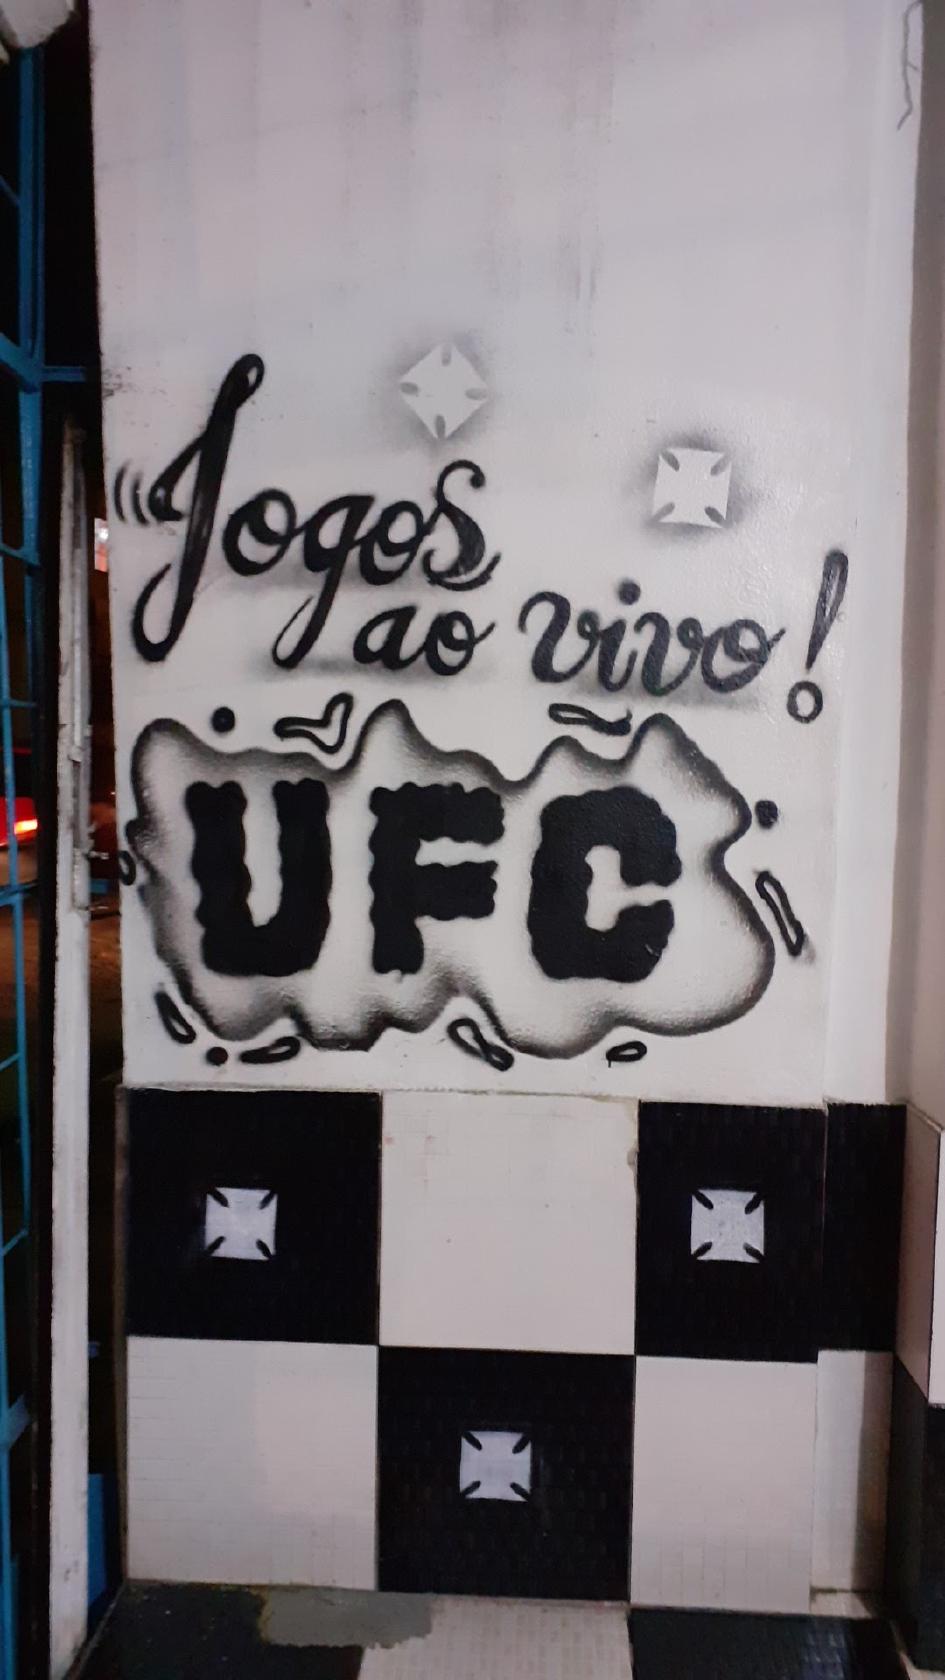 Jogos
ao vivo!
UFC